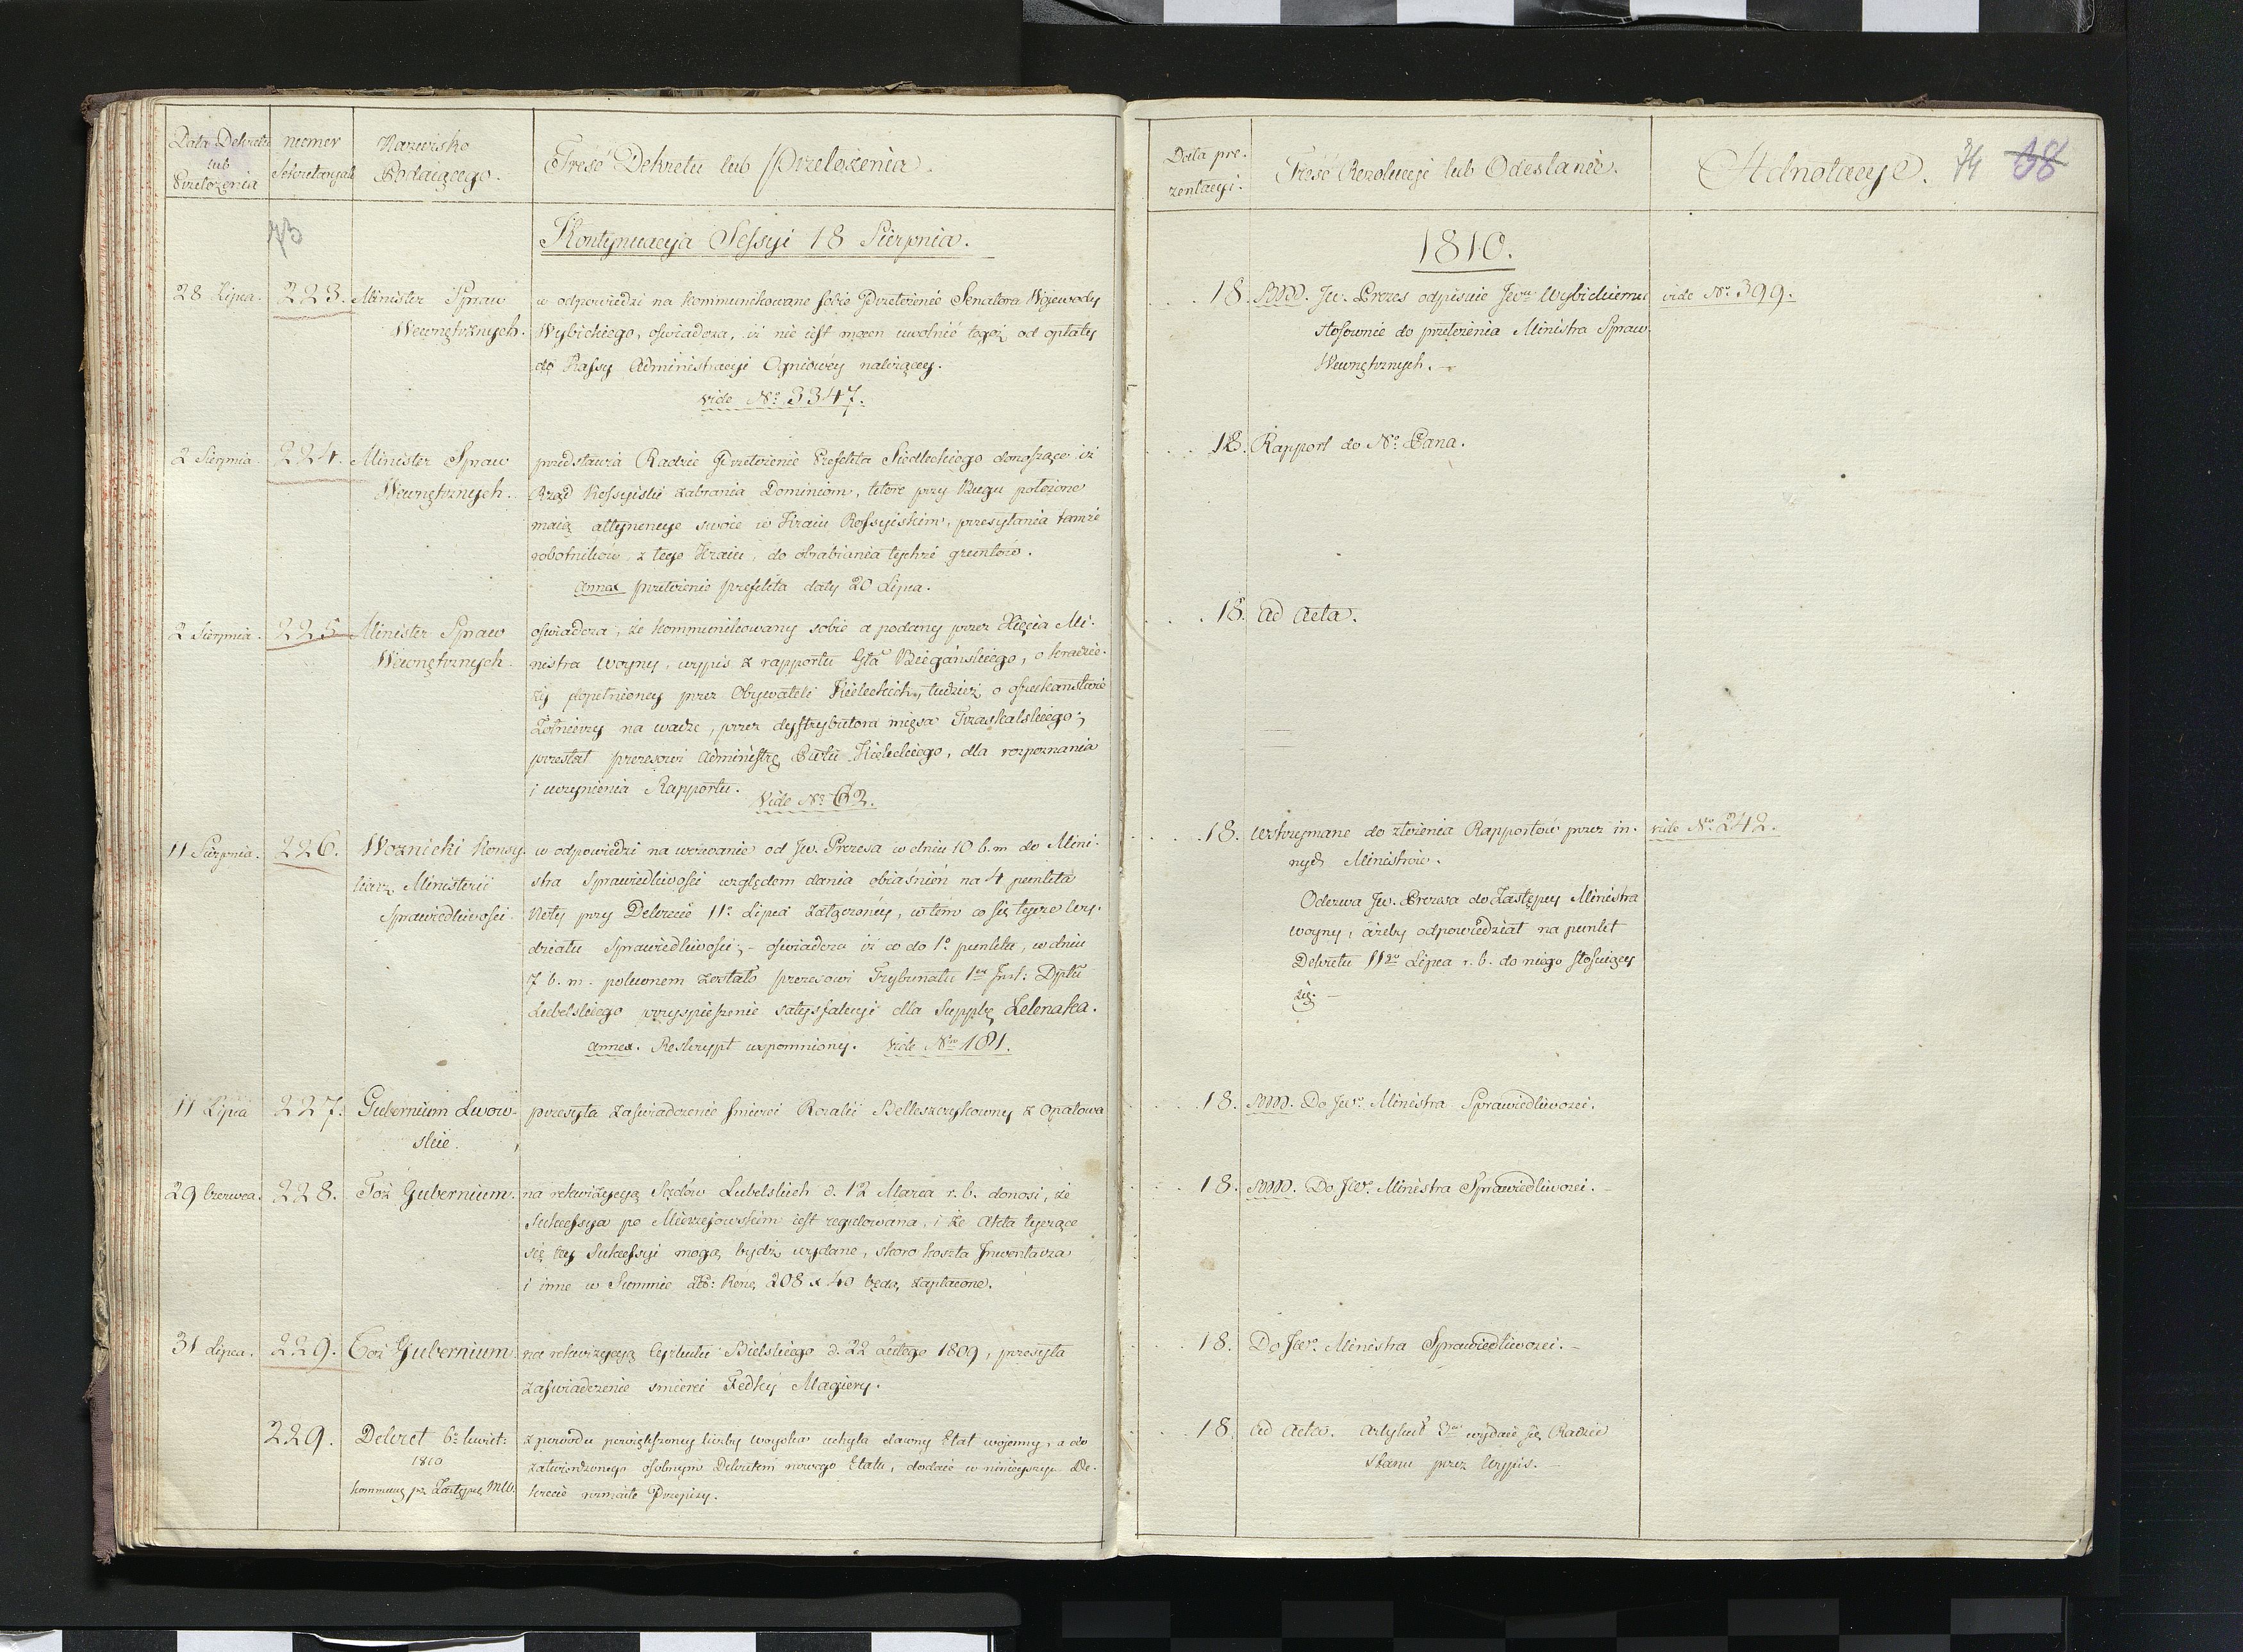 Data Dekretu
lub
Przełożenia
numer
Sekretaryat
Nazwisko
Podaiącego.
Treść Dekretu lub Przełożenia.
73
Kontynuacya Sessyi 18 Sierpnia.
28 Lipca.
223.
Minister Spraw
Wewnętrznych.
w odpowiedzi na kommunikowane sobie Przełożenie Senatora Wojewody
Wybickiego, oświadcza, iż nie iest mocen uwolnić tegoż od opłaty
do Kassy Administracyi Ogniowéy należącey.
vide No 3347.
2 Sierpnia
224.
Minister Spraw
Wewnętrznych.
przedstawia Radzie Przełożenie Prefekta Siedleckiego donoszące iż
Rząd Rossyiski zabrania Dominiom, które przy Bugu położone
maią attynencye swoie w Kraiu Rossyiskim, przesyłania tamże
robotników, z tego Kraiu, do obrabiania tychże gruntów.
annex przełożenie prefekta daty 20 Lipca.
2 Sierpnia.
225
Minister Spraw
Wewnętrznych.
oświadcza, że kommunikowany sobie a podany przez Xięcia Mi-
nistra Woyny, wypis z rapportu Gła Biegańskiego, o kradzie-
ży popełnioney przez Obywateli Kieleckich, tudzież o oszukaństwie
Żołnierzy na wadze, przez dystrybutora mięsa Traskalskiego;
przesłał prezesowi Administrę Pwtu Kieleckiego, dla rozpoznania
i uczynienia Rapportu.
Vide No 62.
11 Sierpnia.
226.
Woznicki Konsy-
liarz Ministerii
Sprawiedliwości.
w odpowiedzi na wezwanie od Jw. Prezesa w dniu 10 b. m do Mini-
stra Sprawiedliwości względem dania obiaśnień na 4 punkta
Noty przy Dekrecie 11o Lipca załączonéy, w tém co się tycze Wy-
działu Sprawiedliwości; - oświadcza iż co do 1o punktu, w dniu
7 b. m. polecone zostało prezesowi Trybunału 1ey Inst: Dpttu
Lubelskiego przyspieszenie satysfakcyi dla Supplę Zelenaka.
annex. Reskrypt wspomniony. vide Nro 181.
11 Lipca
227.
Gubernium Lwow-
skie.
przesyła zaświadczenie śmierci Rozalii Belleszczykowny z Opatowa
29 Czerwca.
228.
Toż Gubernium.
na rekwizycyą Sądów Lubelskich d. 12 Marca r. b. donosi, że
Sukcessya po Mierzejowskim iest regulowana, i że Akta tyczące
się tey Sukcessyi mogą bydź wydane, skoro koszta Inwentarza
i inne w Summie Złł: Reń, 208 x 40 będą zapłacone.
31 Lipca.
229.
Toż Gubernium
na rekwizycyą Cyrkułu Bielskiego d. 22 Lutego 1809, przesyła
zaświadczenie śmierci Fedky Magiery.
229.
Dekret 6o Kwiet:
1810
kommunę pr Zastępcę MW.
z powodu powiększoney liczby woyska uchyla dawny Etat wojenny, a do
zatwierdzonego osobnym Dekretem nowego Etatu, dodaie w ninieyszym De-
krecie rozmaite Przepisy.
Data pre-
zentacyi.
Treść Rezolucyi lub Odesłanie.
Adnotacye.
74 38
1810.
18. Jw. Prezes odpisuie Jwu Wybickiemu
stosownie do przełożenia Ministra Spraw
Wewnętrznych.
vide No 399.
18. Rapport do No Pana.
18. ad Acta.
18. Wstrzymane do złożenia Rapportów przez in-
nych Ministrów.
vide No 242.
Odezwa Jw. Prezesa do Zastępcy Ministra
woyny, ażeby odpowiedział na punkt
Dekretu 11go Lipca r. b. do niego stosuiący
się. -
18. Do Jwo Ministra Sprawiedliwości.
18. Do JWo Ministra Sprawiedliwości.
18. Do Jwo Ministra Sprawiedliwości. -
18. ad Acta. Artykuł 3ci wydaie się Radzie
Stanu przez Wypis. -